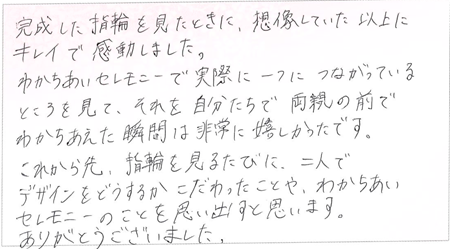 完成した指輪を見たときに、想像していた以上に
キレイで感動しました。
わかちあいセレモニーで実際に一つにつながっている
ところを見て、それを自分たちで両親の前で
わかちあえた瞬間は非常に嬉しかったです。
これから先、指輪を見るたびに、二人で
デザインをどうするかこだわったことや、わかちあい
セレモニーのことを思い出すと思います。
ありがとうございました。